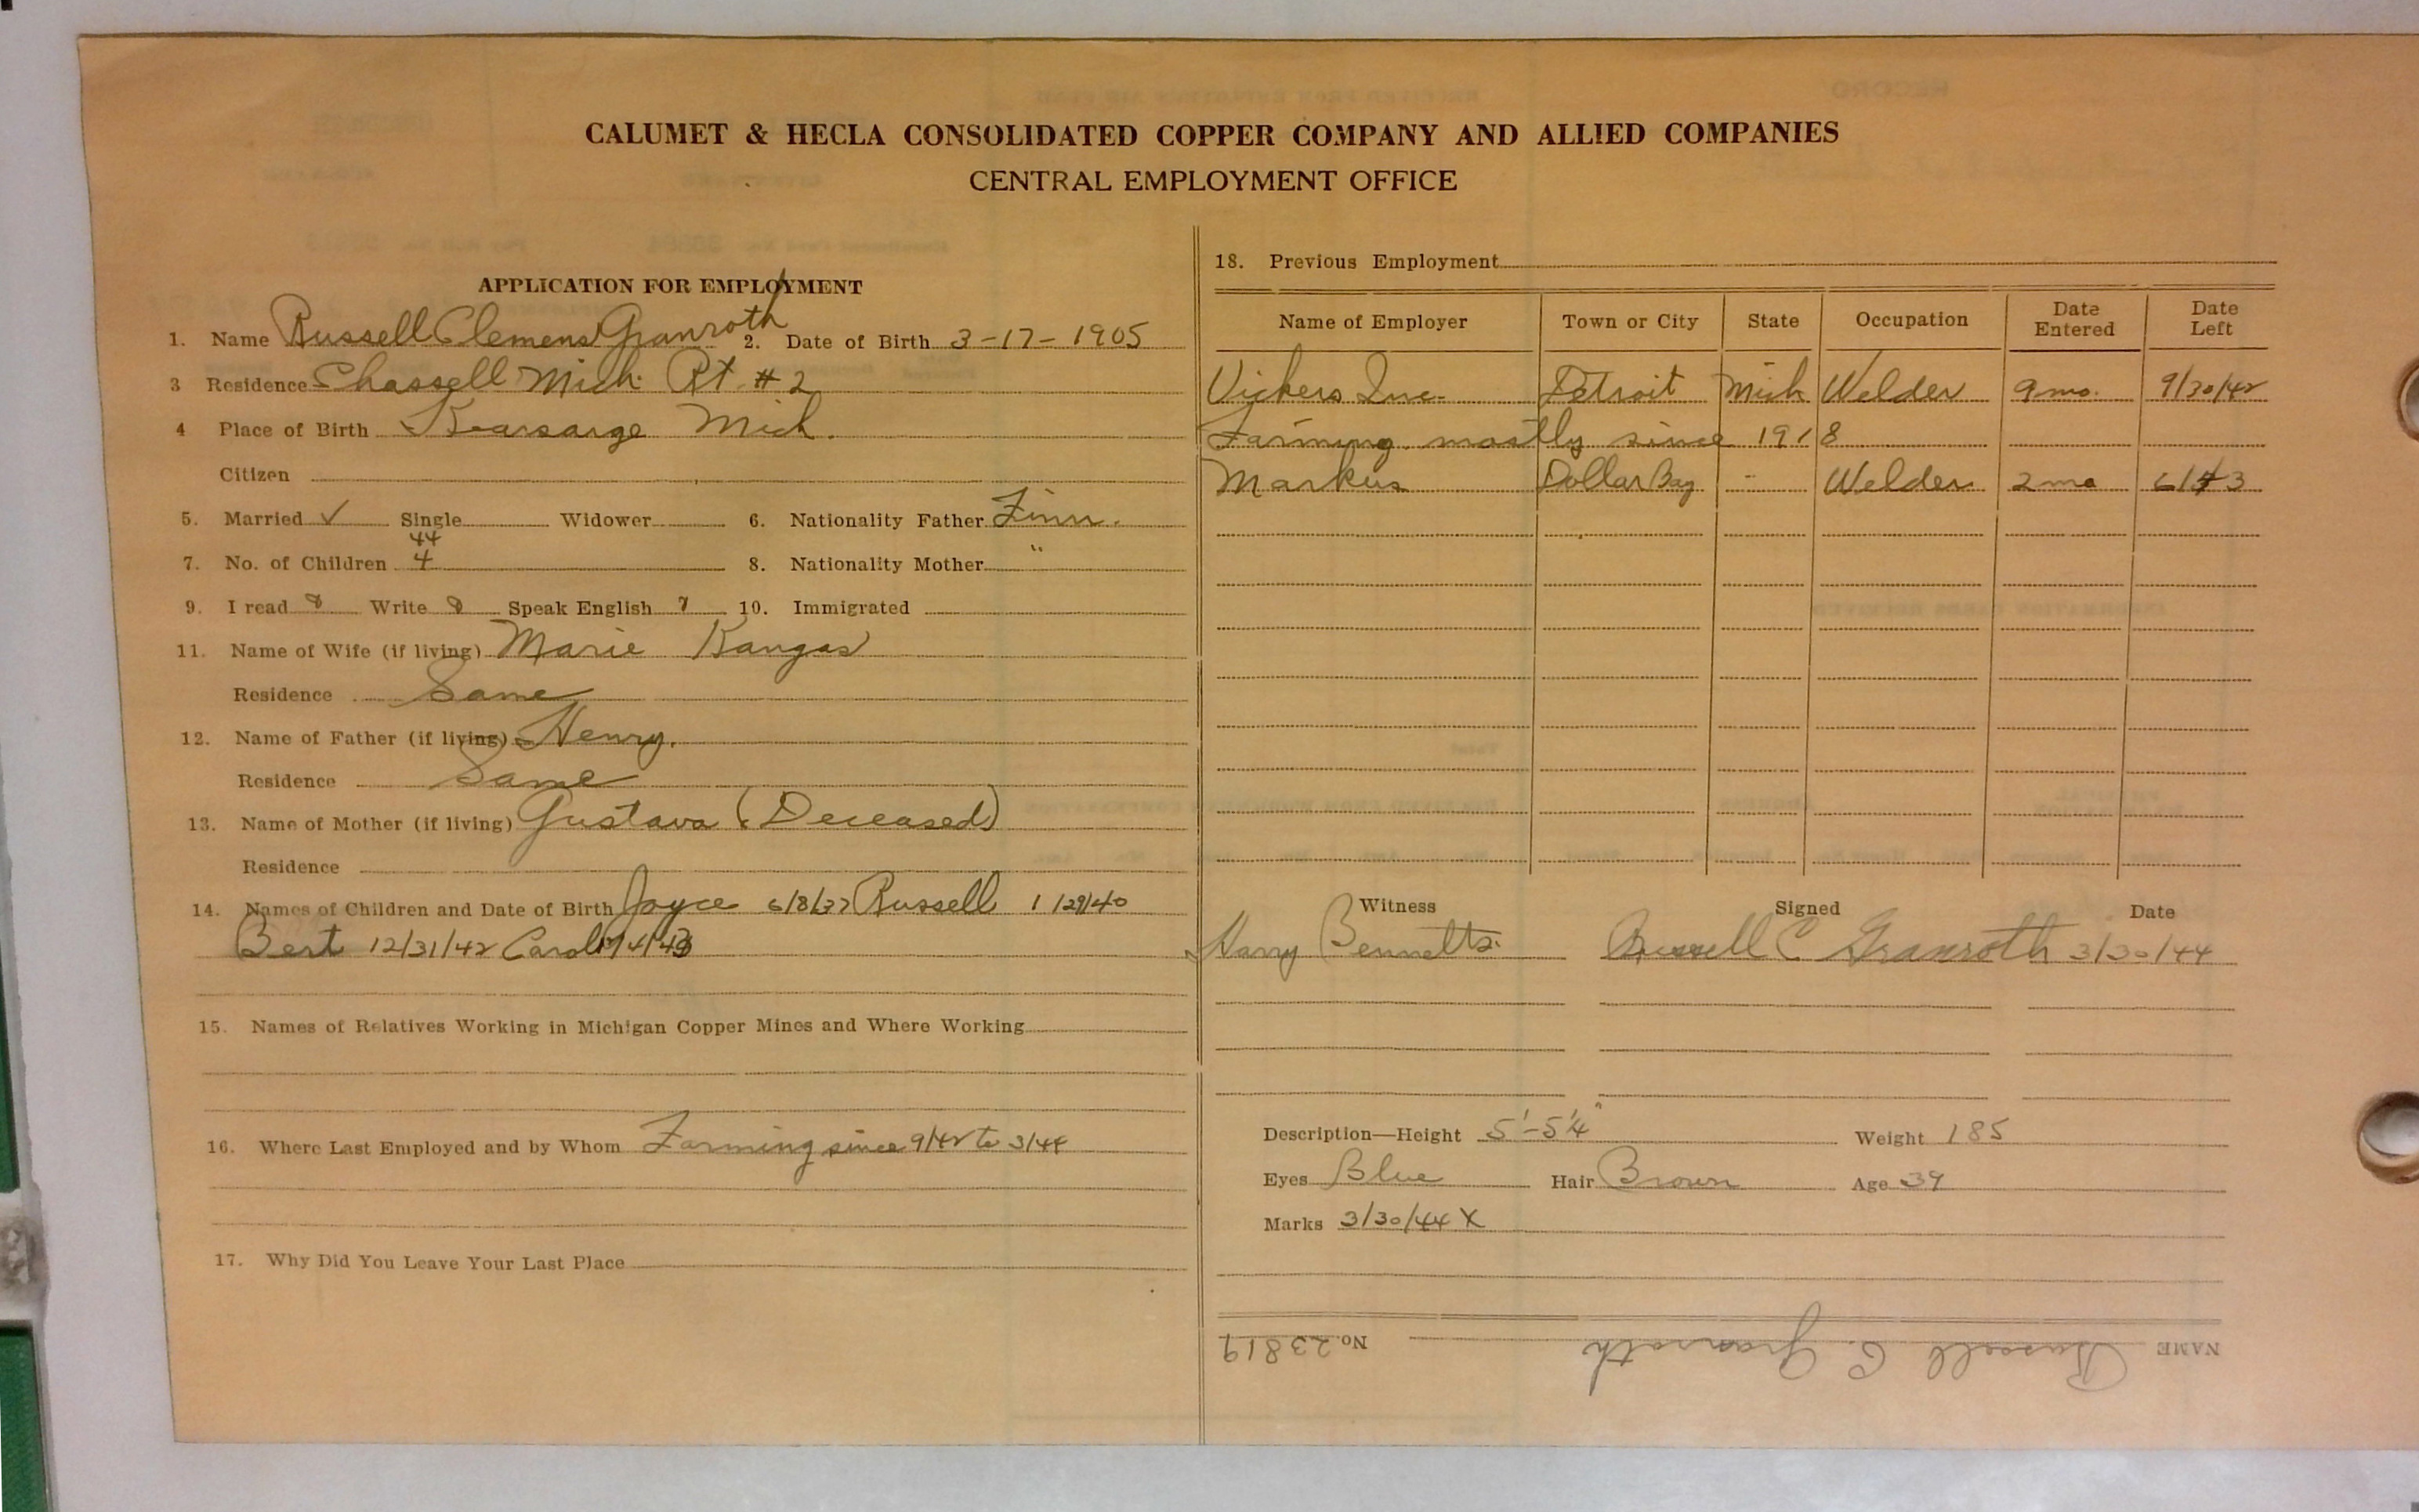 CALUMET & HECLA CONSOLIDATED COPPER COMPANY AND ALLIED COMPANIES
CENTRAL EMPLOYMENT OFFICE
APPLICATION FOR EMPLOYMENT
1. Name Russell Clemens Granroth 2. Date of Birth 3-17-1905
3 Residence Chassell Mich. Rt #2
4 Place of Birth Kearsarge Mich.
Citizen
5. Married ✓ Single Widower 6. Nationality Father Finn.
44
7. No. of Children 4 8. Nationality Mother "
9. I read Write Speak English 10. Immigrated
11. Name of Wife (if living) Marie Kangas
Residence Same
12. Name of Father (if living) Henry.
Residence Same
13. Name of Mother (if living) Gustava (Deceased)
Residence
14. Names of Children and Date of Birth Joyce 6/8/37 Russell 1/29/40
Bert 12/31/42 Carol
15. Names of Relatives Working in Michigan Copper Mines and Where Working
16. Where Last Employed and by Whom Farming since 9/42 to 3/44
17. Why Did You Leave Your Last Place
18. Previous Employment
Name of Employer Town or City State Occupation Date Entered Date Left
Vickers Inc. Detroit Mich Welder 9 mo. 9/30/42
Farming mostly since 1918
Markus Dollar Bay " Welder 2 mo 6/43
Witness Signed Date
Harry Bennetts. Russell C Granroth 3/30/44
Description—Height 5'-5¼" Weight 185
Eyes Blue Hair Brown Age 39
Marks 3/30/44 X
NAME Russell C. Granroth No. 23819